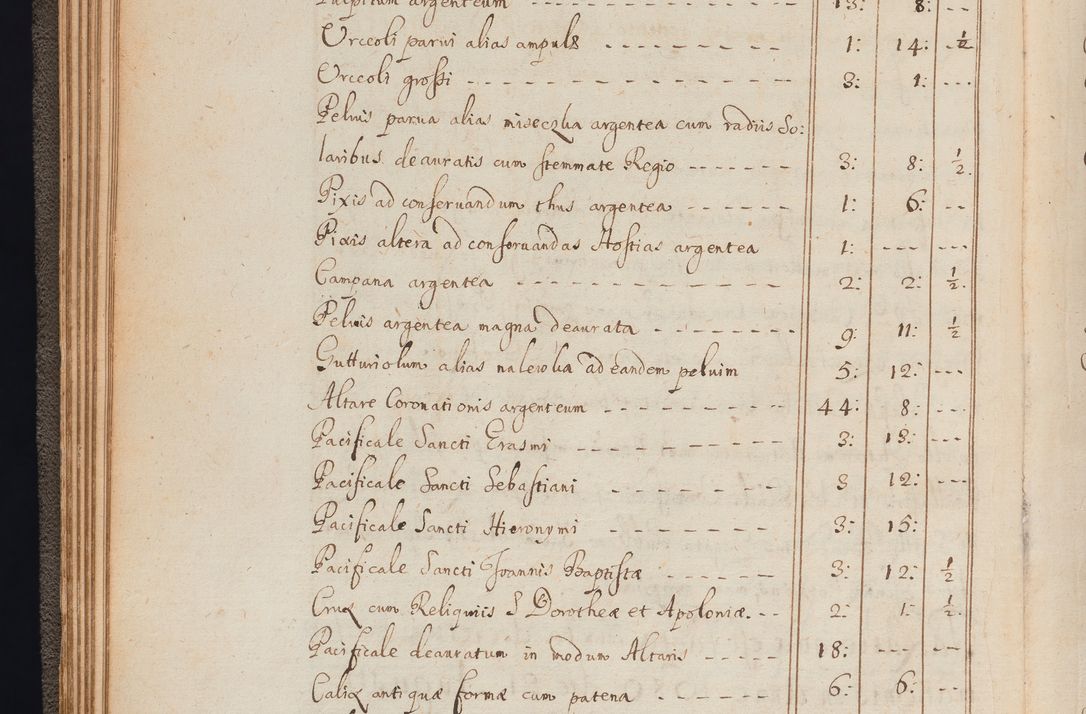 Pulpitum argenteum - - - 13: 8: - -
Urceoli parui alias ampulæ - - - 1: 14: - ½
Urceoli grossi - - - 3: 1: - - -
Peluis parua alias miseczka argentea cum radiis So:
laribus deauratis cum stemmate Regio - - - 3: 8: ½.
Pixis ad conseruandum thus argentea - - - 1: 6: - -
Pixis altera ad conseruandas Hostias argentea 1: - - - - - -
Campana argentea - - - 2: 2: ½.
Peluis argentea magna deaurata - - - 9: 11: ½
Gutturiolum alias nalewka ad eandem peluim 5: 12: - - -
Altare Coronationis argenteum - - - 44: 8: - - -
Pacificale Sancti Erasmi - - - 3: 13: - - -
Pacificale Sancti Sebastiani - - - 3 12: - - -
Pacificale Sancti Hieronymi - - - 3: 15:
Pacificale Sancti Joannis Baptistæ - - - 3: 12: ½
Crux cum Reliquiis S Dorotheæ et Apoloniæ. - - 2: 1: ½.
Pacificale deauratum in modum Altaris - - - 18: - - - - - -
Calix antiquæ formæ cum patena - - - 6: 6: - - -